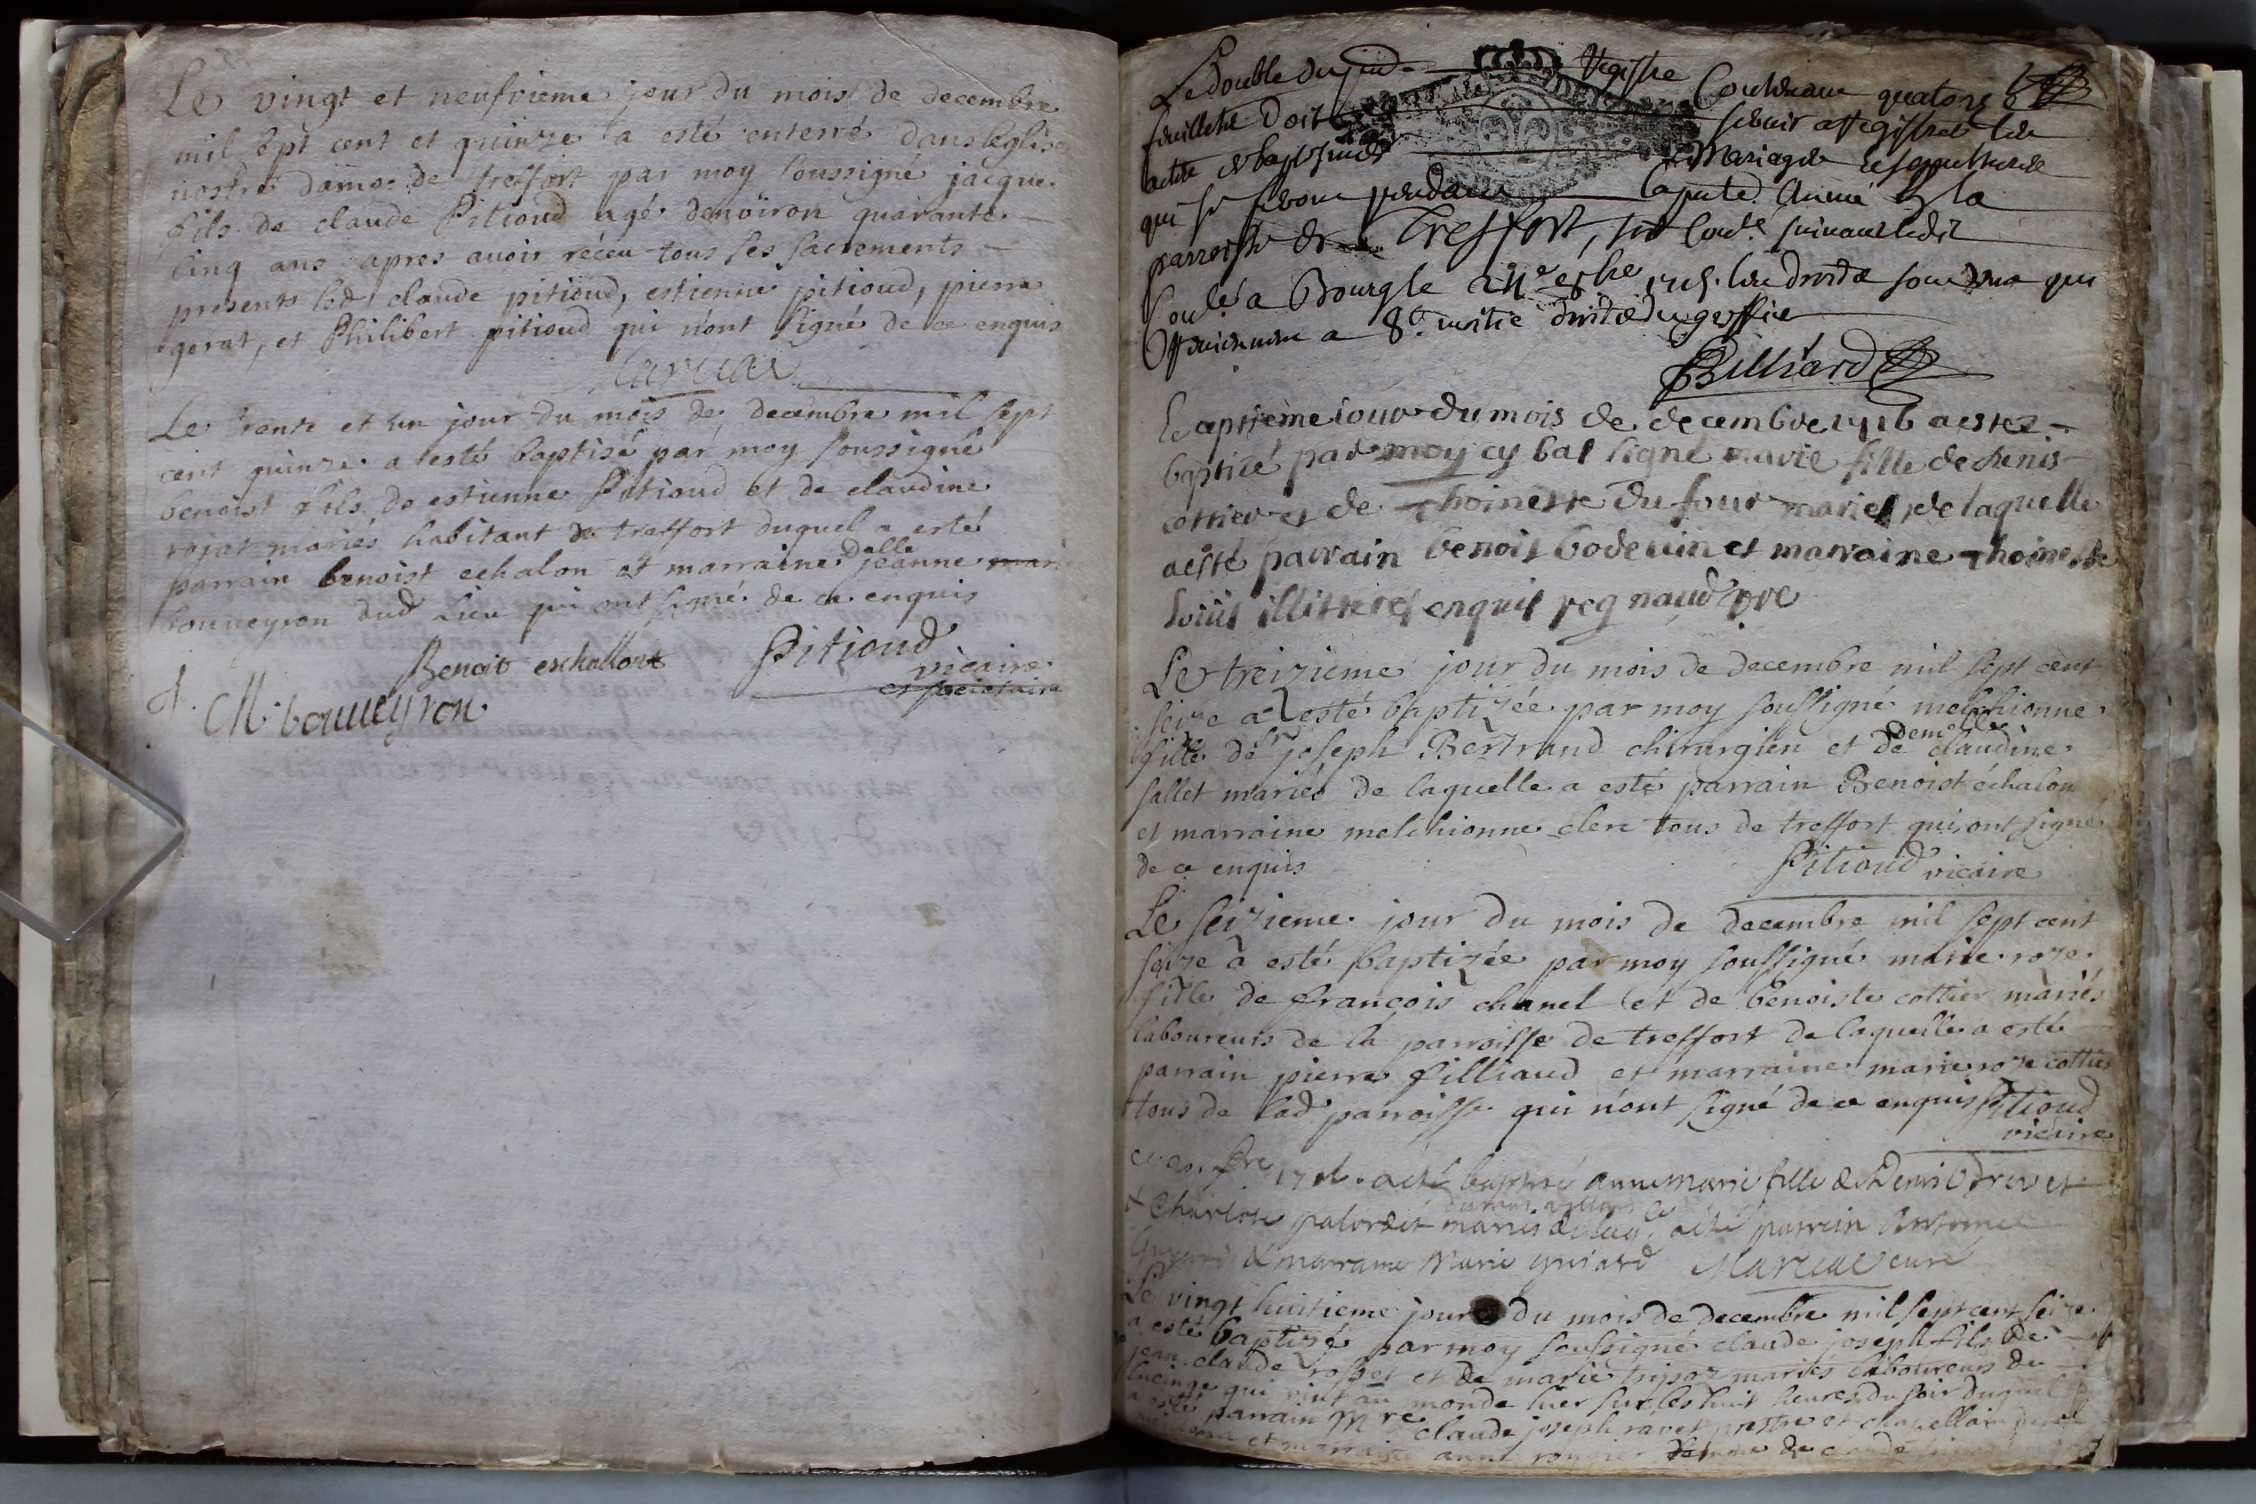 Le vingt et neufvieme jour du mois de decembre
mil sept cent et quinze a esté enterré dans leglise
nostre dame de treffort par moy soussigné jacque
fils de claude Pitioud agé denviron quarante
cinq ans apres avoir réceu tous ses sacrements
presents led claude pitioud, estienne pitioud, pierre
gerat, et Philibert pitioud qui n'ont signé de ce enquis
Le trente et un jour du mois de decembre mil sept
cent quinze a esté baptisé par moy soussigné
benoist fils de estienne Pitioud et de claudine
rojat mariés habitant de treffort duquel a esté
parrain benoist echalon et marraine delle jeanne mari
bouveyron dud lieu qui ont signé de ce enquis
Benoit eschallon Pitioud
vicaire
et societaire
J. M. bouveyron
Le double du registre Contenant quatorze
feuillets Doit servir a registrer les
actes de baptesmes Mariages sepultures
qui se feront pendant la pnte Année en la
parroisse de Treffort,
a Bourg le xbre 1715. les droits
a 8s. moitié droits du greffie
Billiard
le septieme iour du mois de decembre 1716 a estez
baptizé par moy cy bas signé marie fille de denis
cottier et de thoinette du four mariés de laquelle
a esté parrain benoit bodevin et marraine thoinette
illitterés enquis regnaud pre
Le treizieme jour du mois de decembre mil sept cent
seize a esté baptizée par moy soussigné melchionne
fille de sr joseph Bertrand chirurgien et de demelle claudine
sallet mariés de laquelle a esté parrain Benoist échalon
et marraine melchionne clerc tous de treffort qui ont signé
de ce enquis Pitioud vicaire
Le seizieme jour du mois de decembre mil sept cent
seize a esté baptizée par moy soussigné marie roze
fille de françois chanel et de benoiste cottier mariés
laboureurs de la parroisse de treffort de laquelle a esté
parrain pierre filliaud et marraine marie roze cottier
tous de lad parroisse qui n'ont signé de ce enquis Pitioud
vicaire
a esté baptisé anne marie fille de Denis
& Charlote mariés a été parrain Antoine
& marraine Marie guiard curé
Le vingt huitieme jour du mois de decembre mil sept cent seize
a esté baptizé par moy soussigné claude joseph fils de
jean claude rosset et de marie mariés laboureurs de
qui vint au monde hier sur les huit heures du soir duquel
a esté parrain Mre claude joseph ravet prestre et chapellain
et marraine anne femme de claude